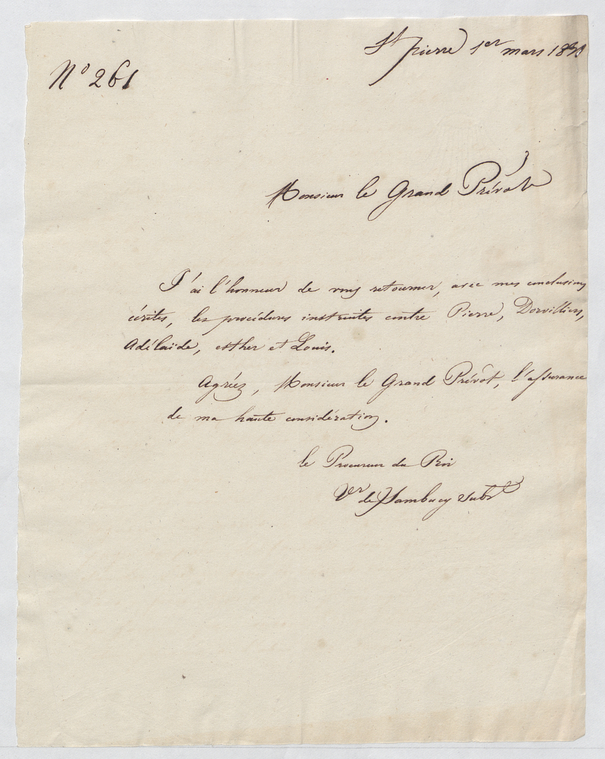 St pierre 1er mars
N° 261
Monsieur le Grand Prévôt
J'ai l'honneur de vous retourner, avec mes conclusions
écrites, les procédures instruites contre Pierre, Dorvilliers,
Adélaïde, esther et Louis.
Agréez, Monsieur le Grand Prévôt, l'assurance
de ma haute considération.
le Procureur du Roi
Vr de Sambucy Subt